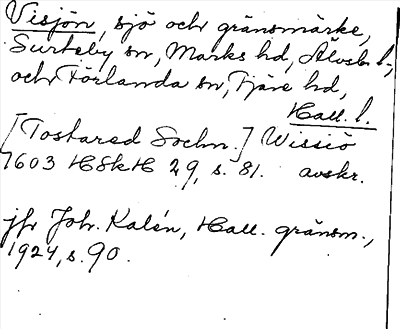 Visjön, sjö och gränsmärke,
Surteby sn, Marks hd, Älvsb. l.,
och Förlanda sn, Fjäre hd,
Hall. l.
[Tostared Sochn.] Wissiö
1603 HSkH 29, s. 81. avskr.
jfr Joh. Kalén, Hall. gränsm.,
1924, s. 90.